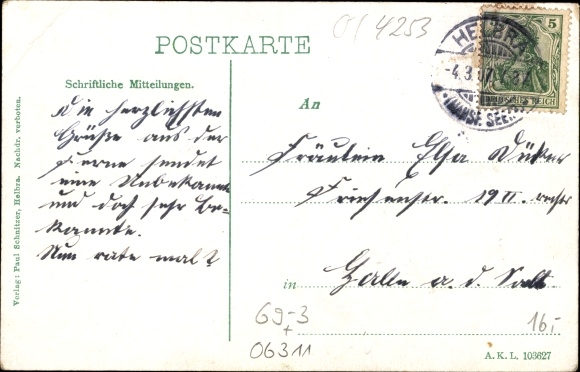 01 4253
POSTKARTE
5
HELBRA
-4.3.07.
(MANSF. SEEKR.)
DEUTSCHES REICH
Schriftliche Mitteilungen.
Die herzlichsten
Grüße aus der
Ferne sendet
eine Unbekannte
und doch sehr be-
kannte.
Nun rate mal?
An
Fräulein Elsa
Friesenstr. 19 II. rechts
in Halle a. d. Saale
69-3
+
06311
16,-
A. K. L. 103627
Verlag: Paul Schnitzer, Helbra. Nachdr. verboten.